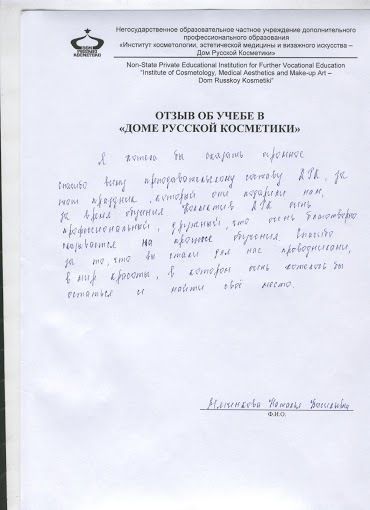 Негосударственное образовательное частное учреждение дополнительного
профессионального образования
«Институт косметологии, эстетической медицины и визажного искусства –
Дом Русской Косметики»
Non-State Private Educational Institution for Further Vocational Education
"Institute of Cosmetology, Medical Aesthetics and Make-up Art –
Dom Russkoy Kosmetiki"
ДОМ
РУССКОЙ
КОСМЕТИКИ
ОТЗЫВ ОБ УЧЕБЕ В
«ДОМЕ РУССКОЙ КОСМЕТИКИ»
Я хотела бы сказать огромное
спасибо всему преподавательскому составу ДРК, за
тот праздник, который они подарили нам,
за время обучения. Коллектив ДРК очень
профессиональный, дружный, что очень благотворно
сказывается на процессе обучения. Спасибо
за то, что вы стали для нас проводниками,
в мир красоты, в котором очень хотелось бы
остаться и найти своё место.
Наталья Васильевна
Ф.И.О.